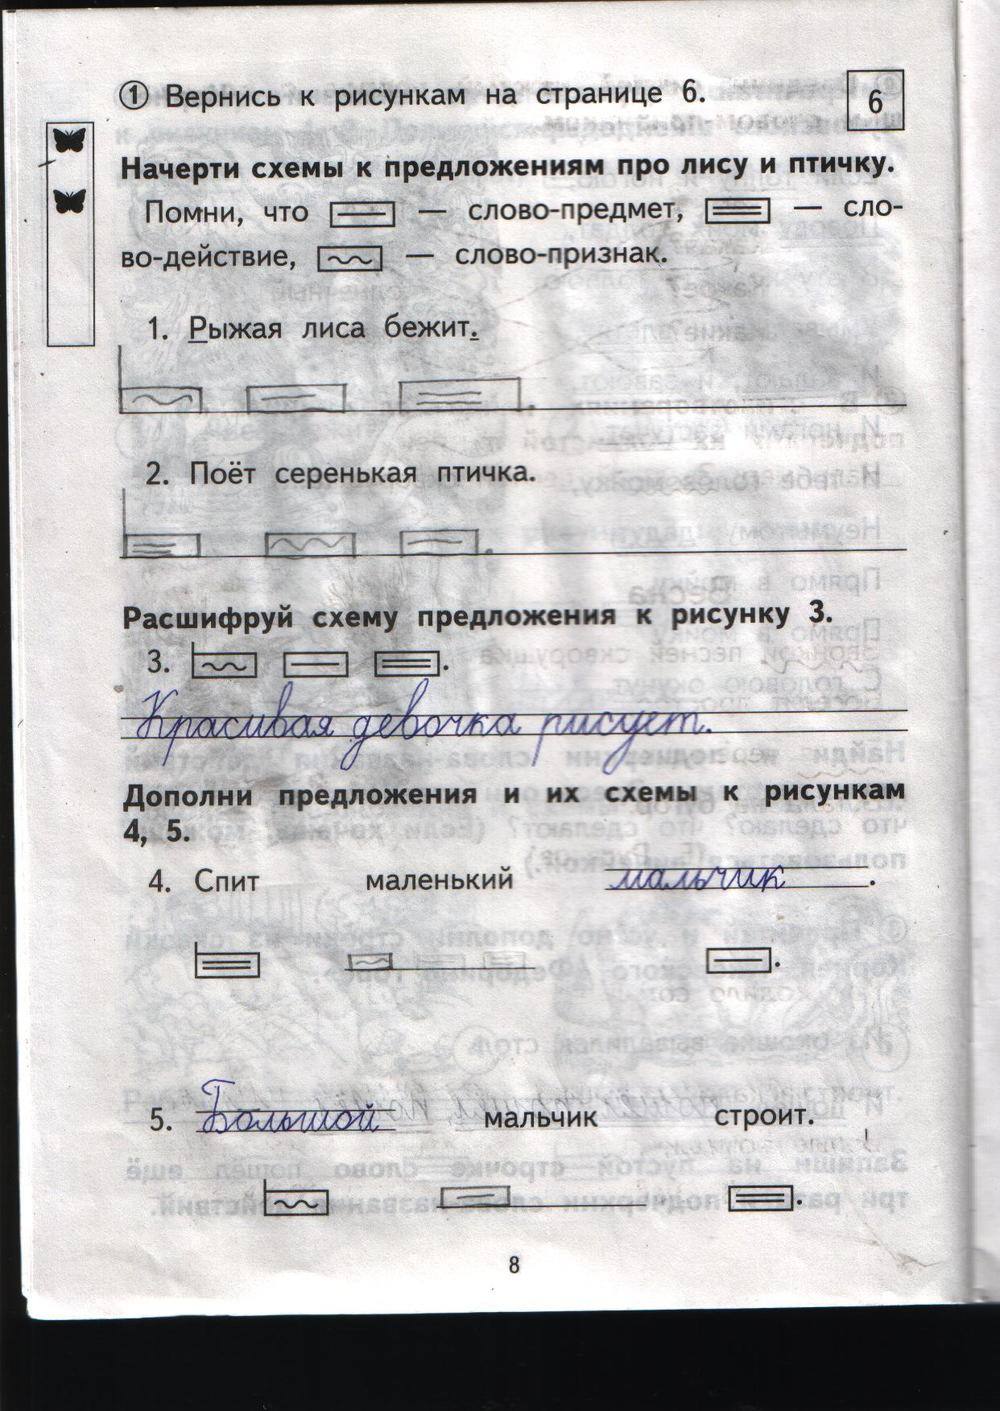 ① Вернись к рисункам на странице 6.
6
Начерти схемы к предложениям про лису и птичку.
Помни, что — слово-предмет, — сло-
во-действие, — слово-признак.
1. Рыжая лиса бежит.
2. Поёт серенькая птичка.
Расшифруй схему предложения к рисунку 3.
3.
Красивая девочка рисует.
Дополни предложения и их схемы к рисункам
4, 5.
4. Спит маленький мальчик.
5. Большой мальчик строит.
8